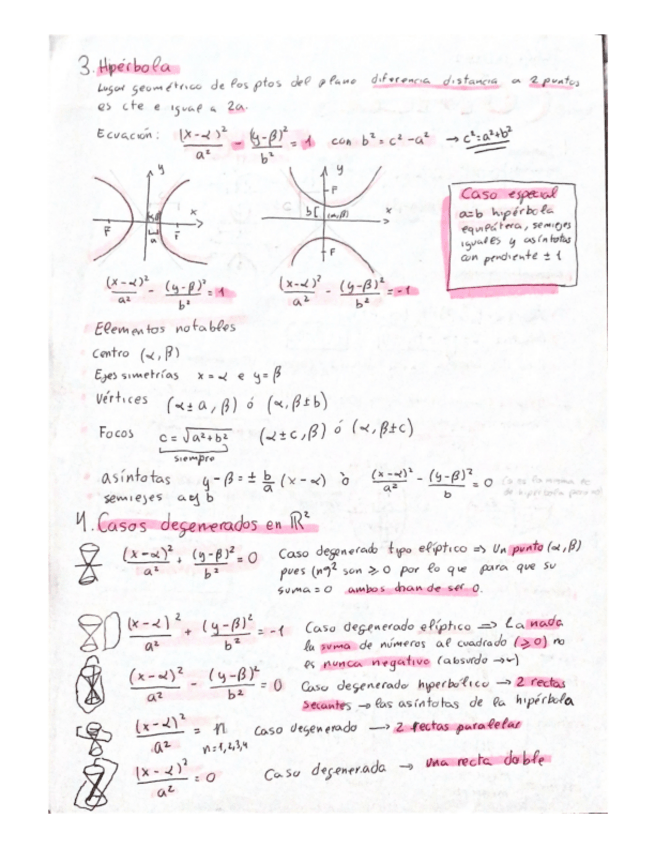 3. Hipérbola
Lugar geométrico de los ptos del plano diferencia distancia a 2 puntos
es cte e igual a 2a.
Ecuación: (x-α)²/a² - (y-β)²/b² = 1 con b² = c² - a² → c² = a² + b²
y
x
F
F
a
y
F
b
(α,β)
x
F
Caso especial
a=b hipérbola
equilátera, semiejes
iguales y asíntotas
con pendiente ± 1
(x-α)²/a² - (y-β)²/b² = 1
(x-α)²/a² - (y-β)²/b² = -1
Elementos notables
Centro (α,β)
Ejes simetrías x=α e y=β
Vértices (α±a, β) ó (α, β±b)
Focos c = √a²+b² (α±c, β) ó (α, β±c)
siempre
asíntotas y-β = ± b/a (x-α) ò (x-α)²/a² - (y-β)²/b = 0
semiejes a y b
4. Casos degenerados en ℝ²
(x-α)²/a² + (y-β)²/b² = 0 Caso degenerado tipo elíptico => Un punto (α,β)
pues (nº)² son ≥ 0 por lo que para que su
suma = 0 ambos han de ser 0.
(x-α)²/a² + (y-β)²/b² = -1 Caso degenerado elíptico => La nada
la suma de números al cuadrado (≥0) no
es nunca negativo (absurdo →←)
(x-α)²/a² - (y-β)²/b² = 0 Caso degenerado hiperbólico → 2 rectas
secantes → las asíntotas de la hipérbola
(x-α)²/a² = n Caso degenerado → 2 rectas paralelas
n=1,2,3,4
(x-α)²/a² = 0 Caso degenerada → una recta doble